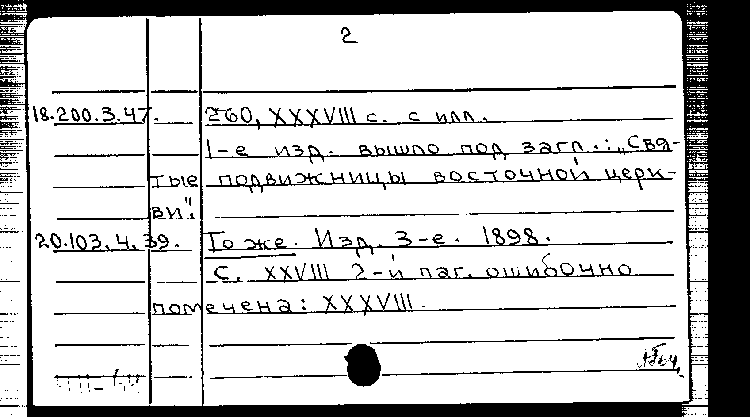 2
18.200.3.47. 260, XXXVIII с. с илл.
1-е изд. вышло под загл.: „Свя-
тые подвижницы восточной церк-
ви".
20.103.4.39. То же. Изд. 3-е. 1898.
С. XXVIII 2-й паг. ошибочно
помечена: XXXVIII.